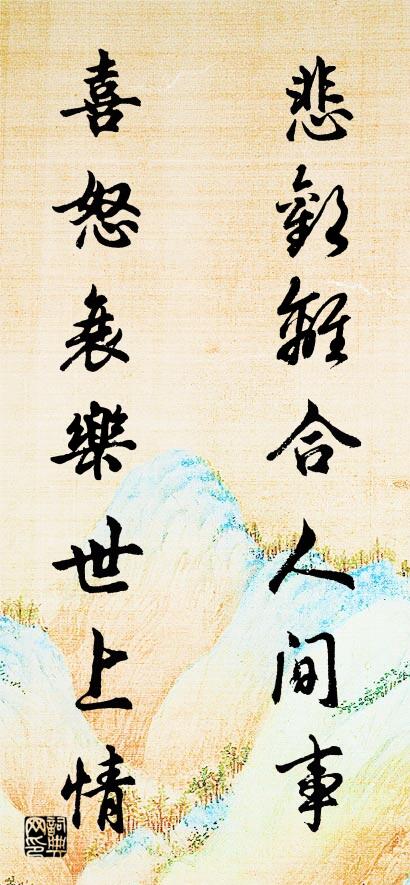 悲歡離合人间事
喜怒哀樂世上情
詞典网印